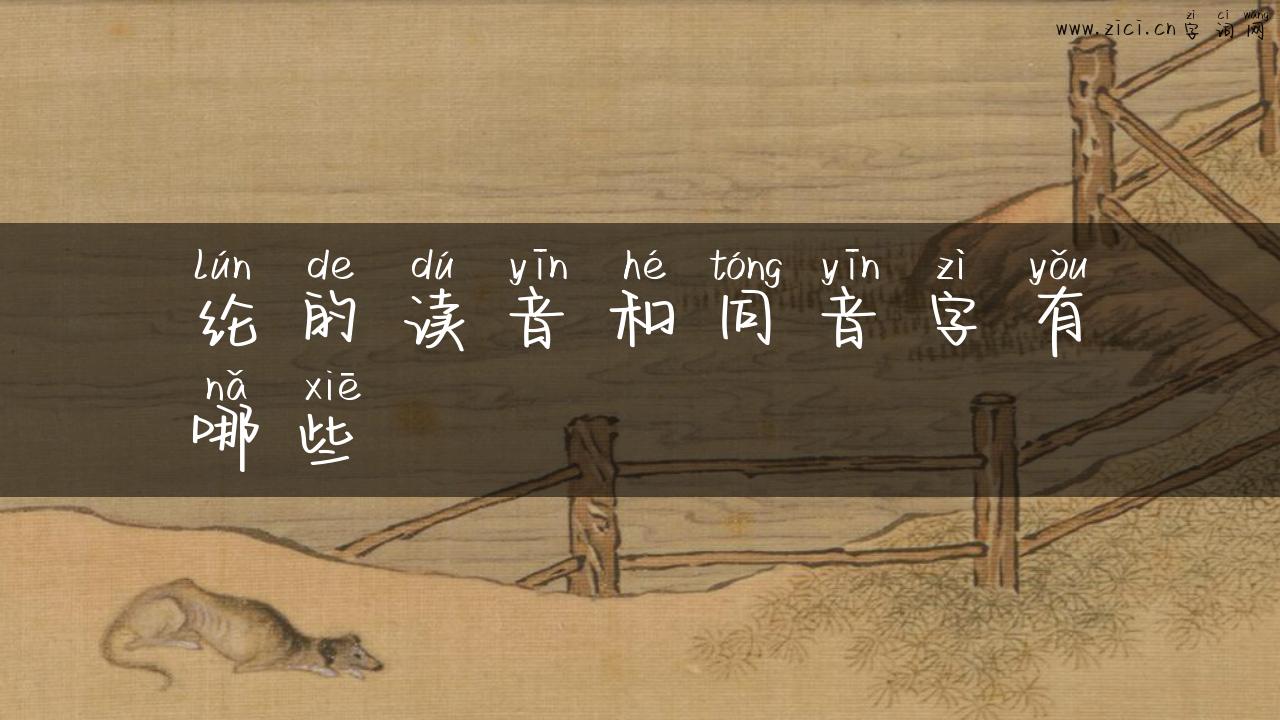 zì cí wǎng
www.zici.cn字词网
lún de dú yīn hé tóng yīn zì yǒu
纶的读音和同音字有
nǎ xiē
哪些